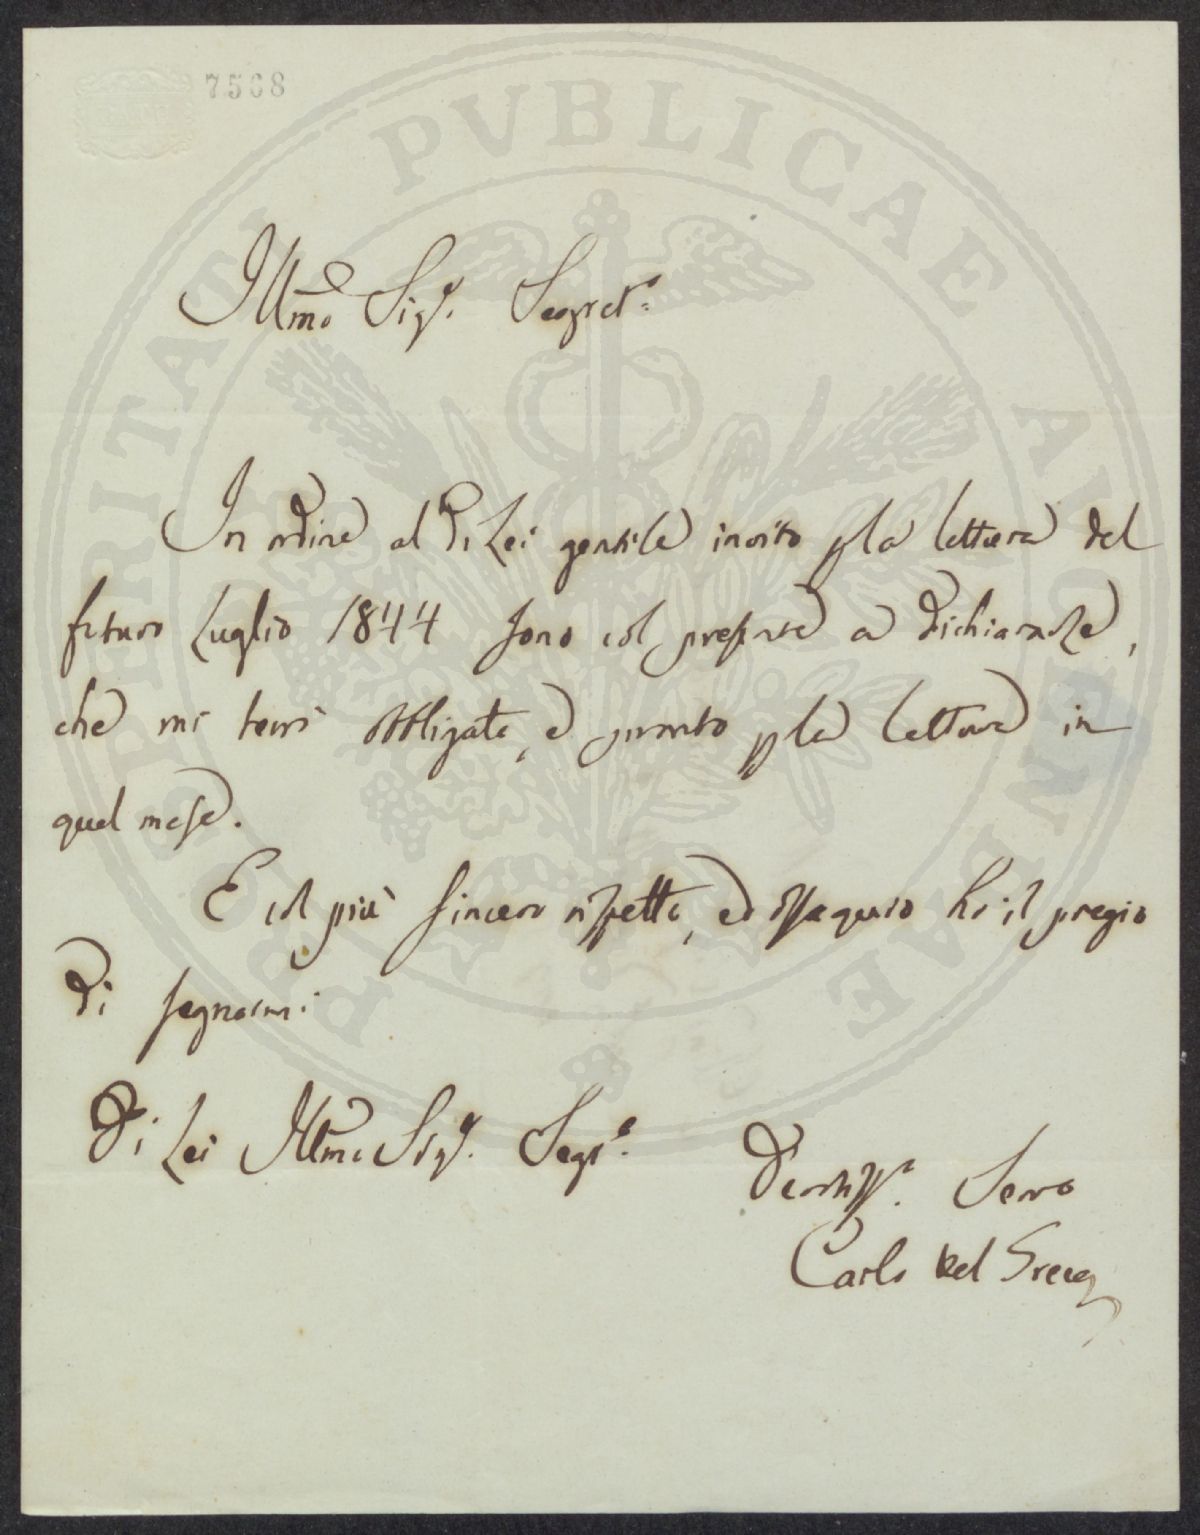 7568
PROSPERITATI PUBLICAE AUGENDAE
Illmo. Sigr. Segret.o
In ordine al di Lei gentile invito pla lettura del
futuro Luglio 1844 sono col presente a dichiararle,
che mi tenni obbligato, e pronto pla lettura in
quel mese.
E col più sincero rispetto, ed ossequio ho il pregio
di segnarmi
Di Lei Illmo Sigr. Segr.o
Devotiss.o Servo
Carlo Del Greco